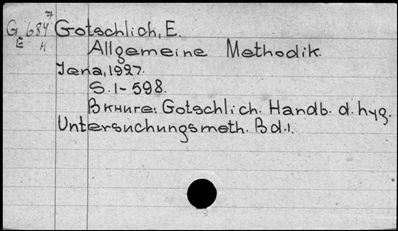 G 684 7 Gotschlich, E.
E H Allgemeine Methodik.
Jena, 1927.
S. 1-598.
Вкниге: Gotschlich. Handb. d. hyg.
Untersuchungsmeth. Bd. 1.